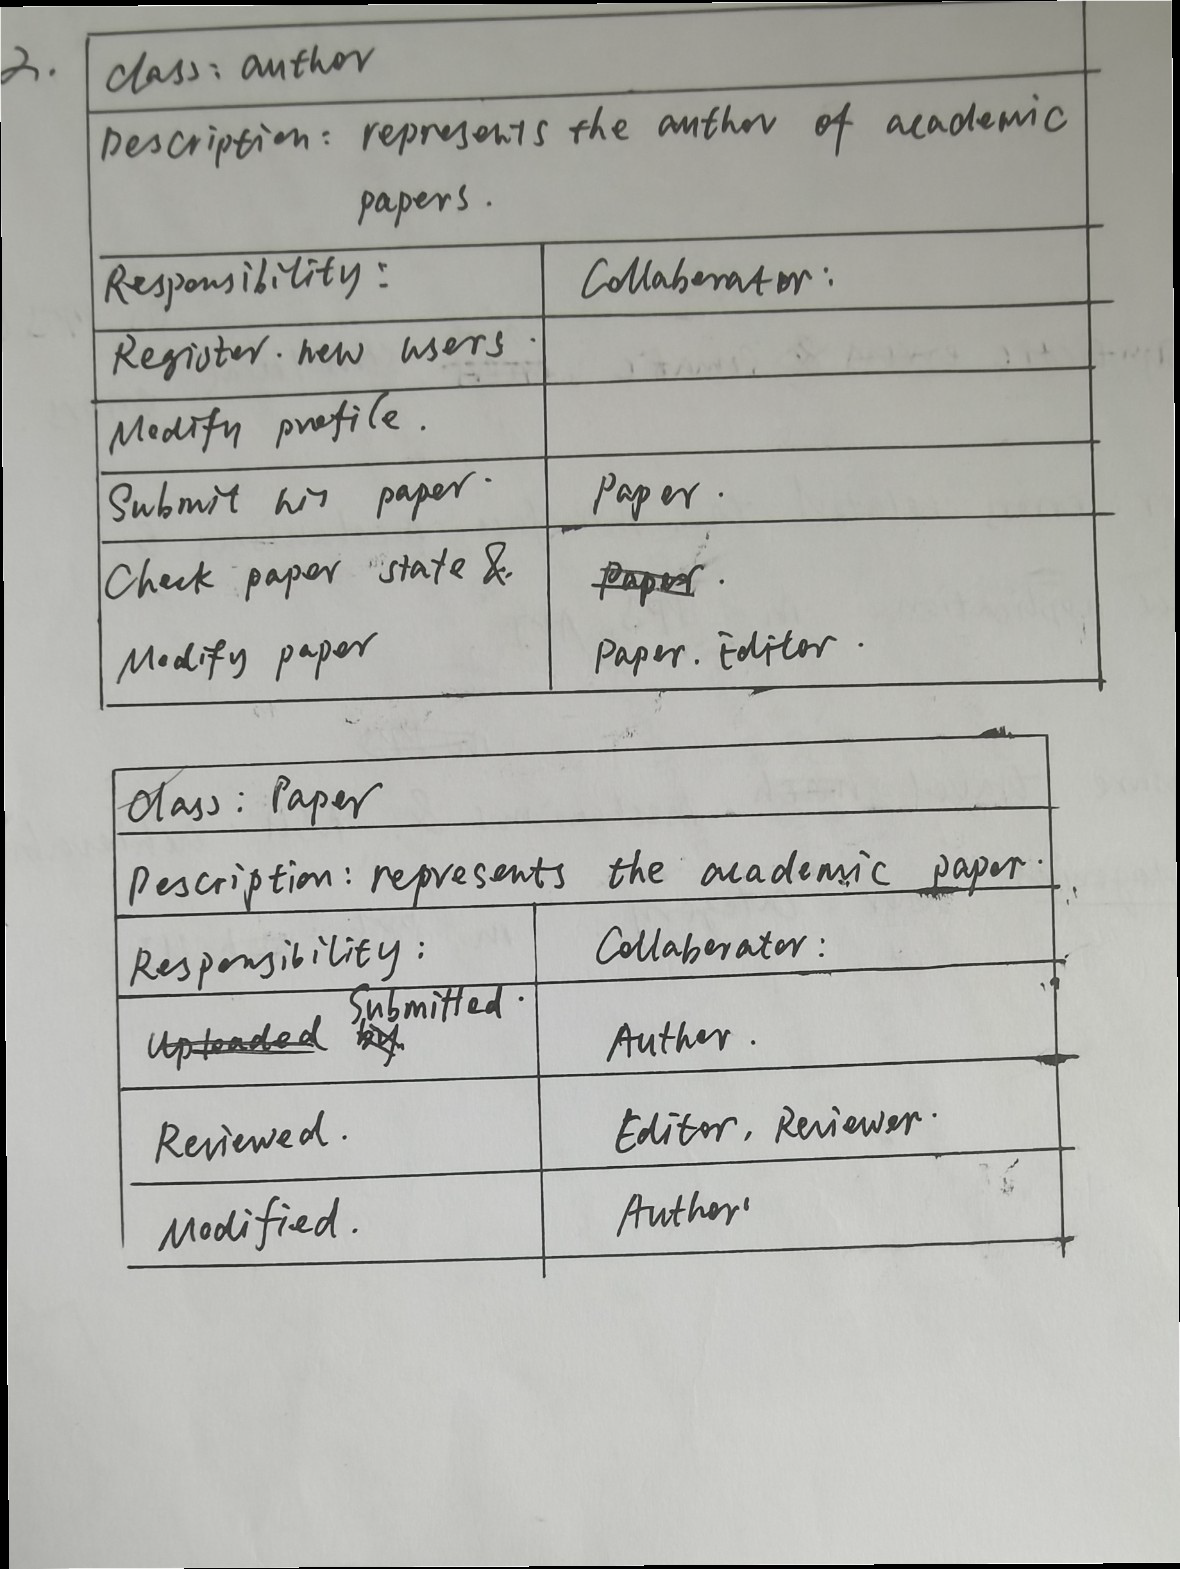 2.
Class: author
Description: represents the author of academic
papers.
Responsibility: Collaberator:
Register new users.
Modify profile.
Submit his paper. Paper.
Check paper state & Paper.
Modify paper Paper. Editor.
Class: Paper
Description: represents the academic paper.
Responsibility: Collaberator:
Submitted.
Uploaded by Author.
Reviewed. Editor, Reviewer.
Modified. Author.